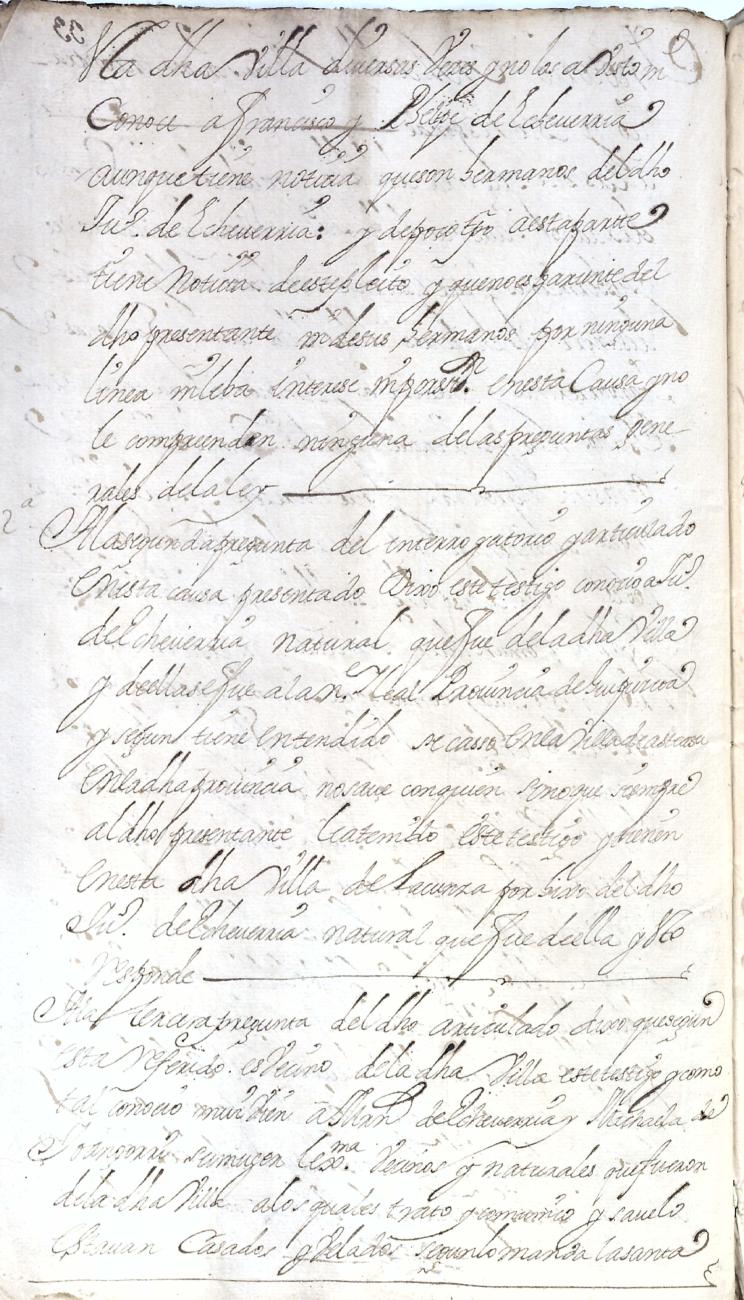 33
Vta dha Villa diversas Veçes y no los a Visto ni
Conoce a francisco y Phelipe de Echeverria
aunque tiene notiçia que son hermanos del dho
Juº. de Echeverria: y de poco tpo a esta parte
tiene Notiçia de este pleito y que no es pariente del
dho presentante ni de sus hermanos por ninguna
linea ni leba interese en esta Causa y no
le comprenden ninguna de las preguntas gene-
rales de la ley
2ª
A la segunda pregunta del interrogatorio y articulado
En esta causa presentado Dixo este testigo conocio a Juº.
de Echeverria natural que fue de la dha Villa
y de ella se fue a la n. y leal Provincia de Guipuzcoa
y segun tiene entendido se casso En la Villa de
En la dha provincia no save con quien sino que siempre
al dho presentante lo a tenido este testigo y tienen
En esta dha Villa de Lacunza por hixo del dho
Juº. de Echeverria natural que fue de ella y esto
Responde
A la tercera pregunta del dho articulado dixo que segun
esta Referido es Vecino de la dha Villa este testigo y como
tal conocio mui bien a Mrn de Echeverria y Michaela de
su muger lexma. Vecinos y naturales que fueron
de la dha Villa a los quales trato y comunico y save lo
Estavan Casados y Velados segun lo manda la santa